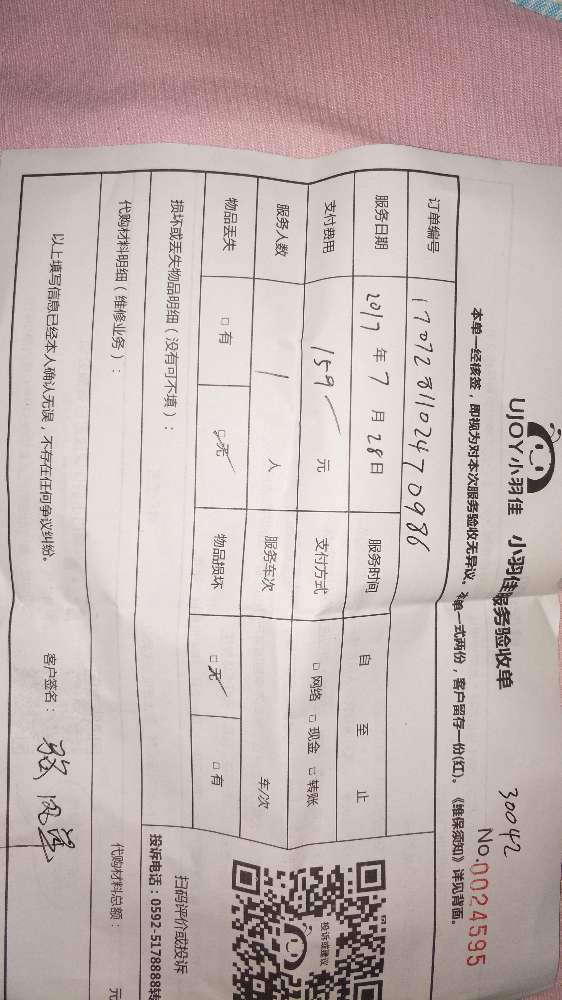 UJOY小羽佳 小羽佳服务验收单
30042
No.0024595
本单一经核签，即视为对本次服务验收无异议。单一式两份，客户留存一份(红)。《维保须知》详见背面。
订单编号 1707281102470986
服务日期 2017 年 7 月 28 日 服务时间 自 至 止
支付费用 159 元 支付方式 □ 网络 □ 现金 □ 转账
服务人数 1 人 服务车次 车/次
物品丢失 □ 有 □ 无 物品损坏 □ 无 □ 有
损坏或丢失物品明细（没有可不填）：
投诉或建议
扫码评价或投诉
投诉电话：0592-5178888转
代购材料明细（维修业务）：
代购材料总额： 元
以上填写信息已经本人确认无误，不存在任何争议纠纷。
客户签名：